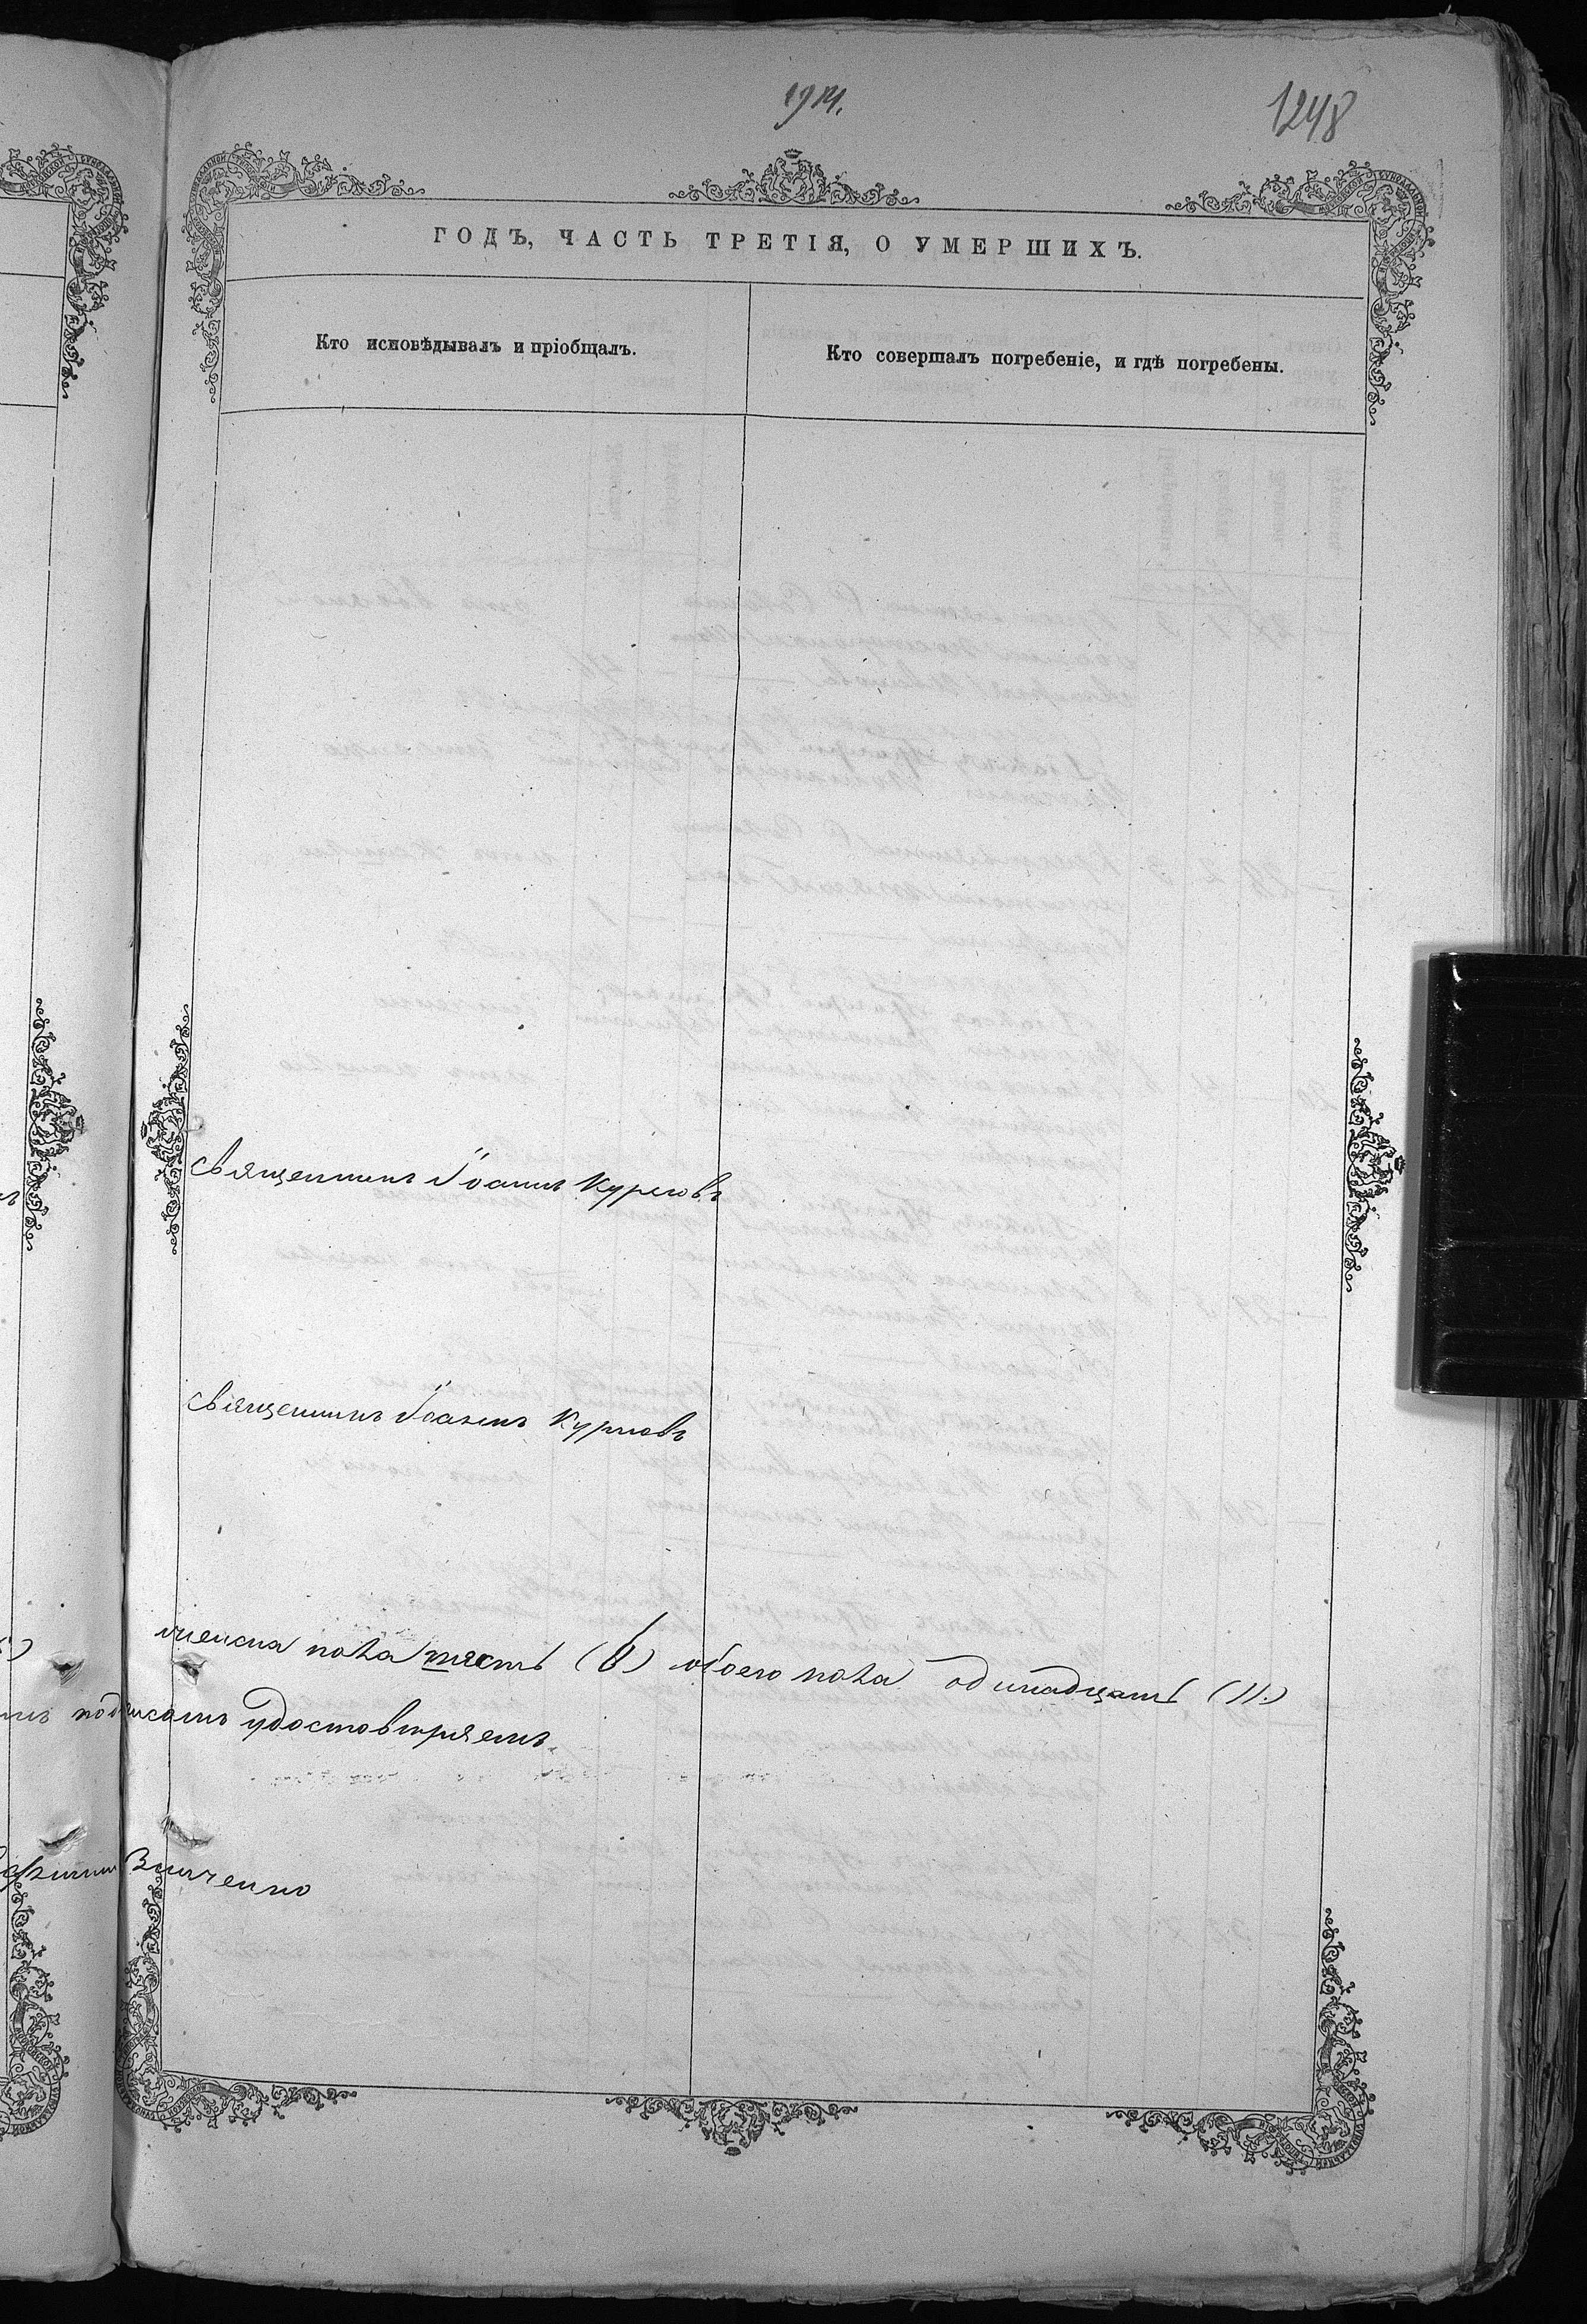 1914.
1248
ГОДЪ, ЧАСТЬ ТРЕТІЯ, О УМЕРШИХЪ.
Кто исповѣдывалъ и пріобщалъ.
Кто совершалъ погребеніе, и гдѣ погребены.
Священникъ Іоаннъ Курловъ
Священникъ Іоаннъ Курловъ
женска пола шесть (6) обоего пола одинадцать (11.)
подписомъ удостовѣряемъ.
Зинченко